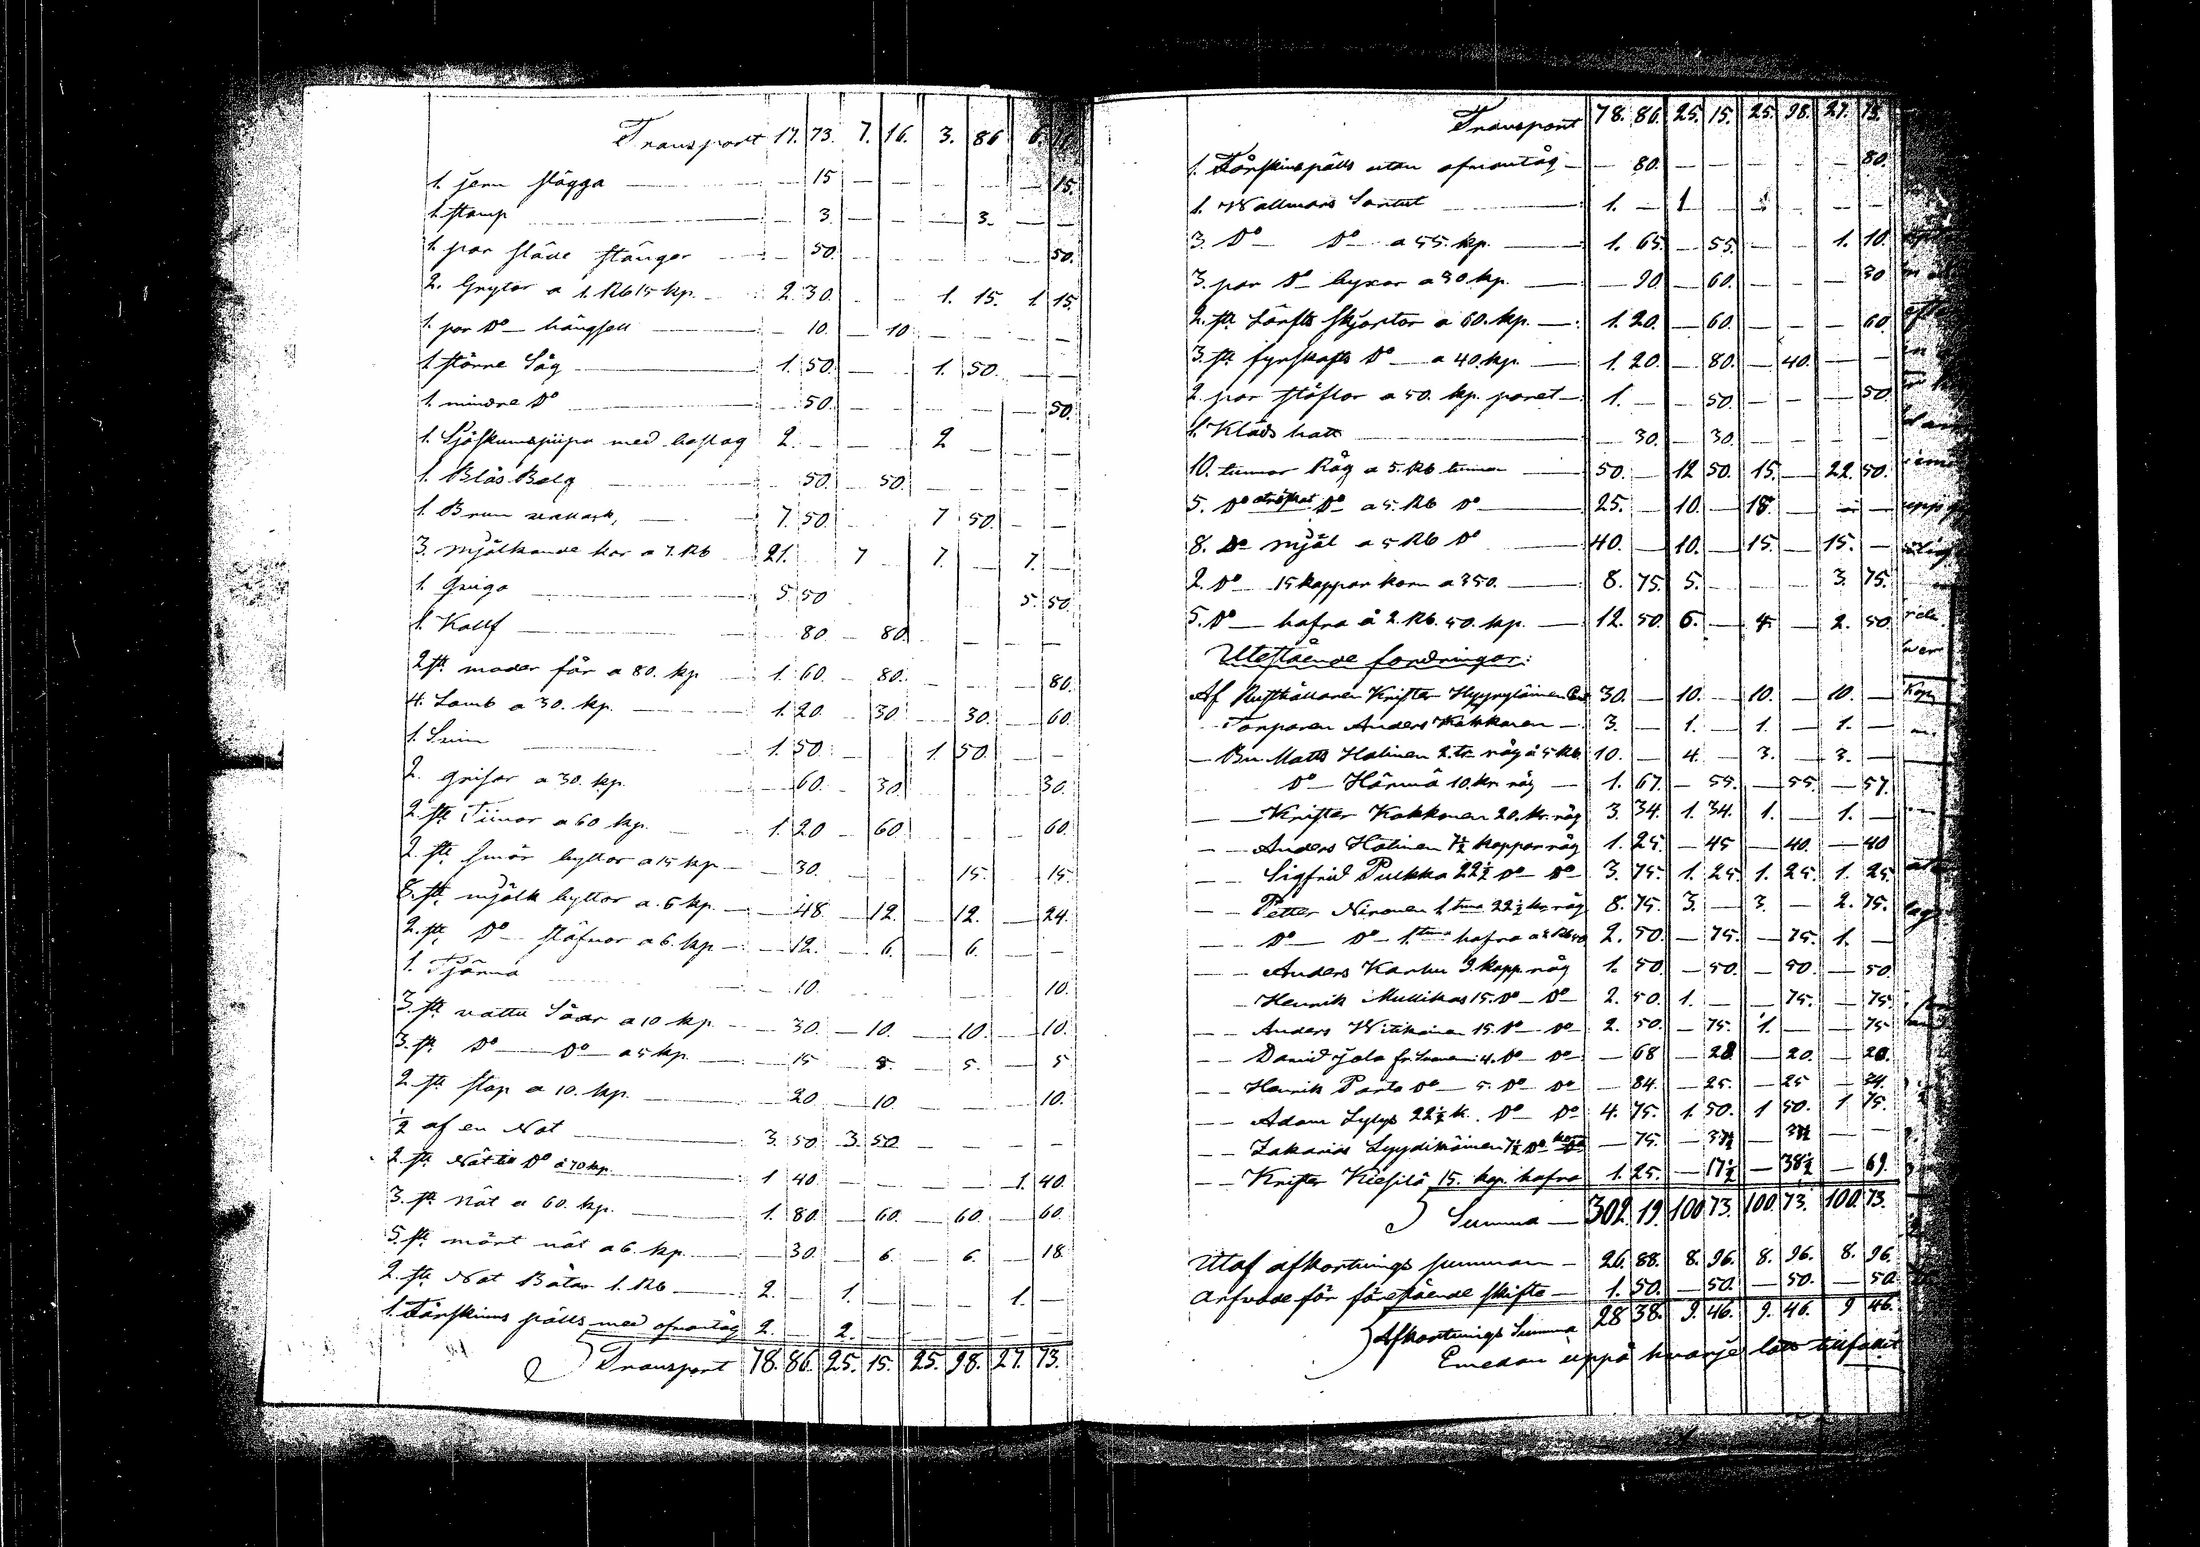 Transport 17. 73. 7. 16. 3. 86 6. 71.
1. jern slägga — 15 — — — — — 15.
1. stamp — 3. — — — 3. — —
1. par släde stänger — 50. — — — — — 50.
2. Grytor a 1. Rb 15 kp. 2. 30. — — 1. 15. 1. 15.
1. par Do hängsell — 10. — 10. — — — —
1. större Såg 1. 50. — — 1. 50. — —
1. mindre Do 50. — 50.
1. Sjöskumspipa med beslag 2. — — 2 — —
1. Blås Balg 50. — 50. — — — —
1. Brun 7. 50. 7 50. — —
3. mjölkande kor a 7. Rb 21. 7 7. 7.
1. Qviga 5 50 5. 50.
1. Kallf 80. — 80. — — — —
2 st. moder får a 80. kp 1. 60. — 80. — — — 80.
4. Lamb a 30. kp. 1. 20. — 30. 30. — 60.
1. Svin 1. 50. 1 50. — —
2. grisar a 30. kp. 60. — 30. 30.
2. st. Tiinor a 60 kp. 1. 20 — 60. 60.
2. st. smör byttor a 15 kp — 30. 15. 15.
8. st. mjölk byttor a. 6 kp. — 48. — 12. — 12. — 24.
2. st. Do stäfvor a 6. kp — 12. — 6. — 6. — —
1. Tjärna — 10. 10.
3. st. vattu Såar a 10 kp — 30. — 10. — 10. — 10.
3. st. Do Do a 5 kp. — 15 — 5. — 5. — 5
2. st. stop a 10. kp. — 20 — 10. — — — 10.
1/2 af en Not 3. 50. 3. 50 — — — —
2. st. Nät till Do a 70 kp. 1 40. — — — — 1. 40.
3. st. Nät a 60. kp. 1. 80. — 60. — 60. — 60.
5. st. mört nät a 6. kp. — 30. — 6. — 6. — 18.
2. st. Not Båtar 1. Rb 2. — 1. — — — 1. —
1. Fårskinns pälls med ofvantåg 2. — 2. — — — — —
Transport 78. 86. 25. 15. 25. 98. 27. 73.
Transport 78. 86. 25. 15. 25. 98. 27. 73.
1. Fårskinspälls utan ofvantåg — 80. — — — — — 80.
1. Wallmars Surtut 1. — 1 — — — —
3. Do Do a 55. kp. 1. 65. — 55. — — 1. 10.
3. par Do byxor a 30 kp. — 90. — 60. — — — 30
2. st. Lärfts skjortor a 60. kp. 1. 20. — 60. — — — 60.
3. st. fyrskafts Do a 40. kp. 1. 20. — 80. — 40. — —
2. par stöflor a 50. kp. paret 1. — 50. — — — 50.
1. Kläds hatt — 30. — 30. — — — —
10. tunnor Råg a 5. Rb tunnan 50. — 12 50. 15. — 22. 50.
5. Do Do a 5. Rb Do 25. — 10. — 15. — — —
8. Do mjöl a 5 Rb Do 40. — 10. — 15. — 15. —
2. Do 15 kappar korn a 3 50. 8. 75. 5. — — — 3. 75.
5. Do hafra å 2. Rb. 50. kp. 12. 50. 6. — 4. — 2. 50.
Utestående fordringar:
Af Rusthållaren Krister Hyyryläinen 30. — 10. — 10. — 10. —
Torparen Anders Kakkonen 3. — 1. — 1. — 1. —
— Bn. Matts Halinen 2. tr. råg å 5 Rb. 10. — 4. — 3. — 3. —
Do Härmä 10. kr. råg 1. 67. — 55. — 55. — 57.
— — Krister Kakkonen 20. kr. råg 3. 34. 1. 34. 1. — 1. —
— — Anders Halinen 7 1/2 kappar råg 1. 25. — 45 — 40. — 40
— — Sigfrid Pulkka 22 1/2 Do Do 3. 75. 1. 25. 1. 25. 1. 25.
— — Petter Nironen 1. tna 22 1/2 kr. råg 8. 75. 3. — 3. — 2. 75.
— — Do Do 1. tna hafra a 2 Rb 50 2. 50. — 75. — 75. 1. —
— — Anders Karhu 9. kapp. råg 1. 50. — 50. — 50. — 50.
— Henrik Mullikas 15. Do Do 2. 50. 1. — — 75. — 75.
— — Anders Witikainen 15. Do Do 2. 50. — 75. 1. — — 75
— — David 4. Do Do — 68 — 28 — 20. — 20.
— — Henrik Parto Do 5. Do Do — 84. — 25. — 25 — 34.
— — Adam Lylys 22 1/2 k. Do Do 4. 75. 1. 50. 1 50. 1 75.
— — Zakarias Lyydikäinen 7 1/2 Do — 75. — 37 1/2 — 37 1/2 — —
— — Krister Kiesilä 15. kap. hafra 1. 25. — 17 1/2 — 38 1/2 — 69.
Summa 302. 19. 100 73. 100. 73. 100. 73.
Utaf afkortnings summan 26. 88. 8. 96. 8. 96. 8. 96.
Arfvode för förestående skifte 1. 50. — 50. — 50. — 50
Afkortnings Summa 28 38. 9. 46. 9. 46. 9 46.
Emedan uppå hvarje lott tillfallit